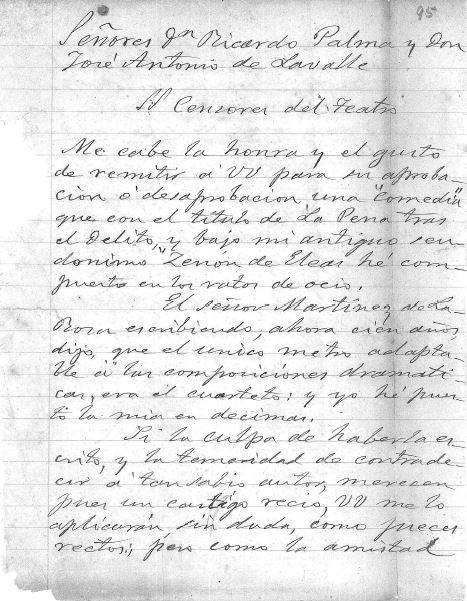 95
Señores Dn Ricardo Palma y Don
José Antonio de Lavalle
SS Censores del Teatro
Me cabe la honra y el gusto
de remitir á VV para su aproba-
cion ó desaprobacion una "Comedia"
que con el titulo de La Pena tras
el Delito, y bajo mi antiguo seu-
donimo "Zenon de Eleas hé com-
puesto en los ratos de ocio.
El señor Martinez de La-
Rosa escribiendo, ahora cien años,
dijo, que el unico metro adapta-
ble á las composiciones dramati-
cas, era el cuarteto: y yo hé pues-
to la mia en decimas.
Si la culpa de haberla es-
crito, y la temeridad de contrade-
cir á tan sabio autor, merecen
pues un castigo recio, VV me lo
aplicaran sin duda, como jueces
rectos; pero como la amistad